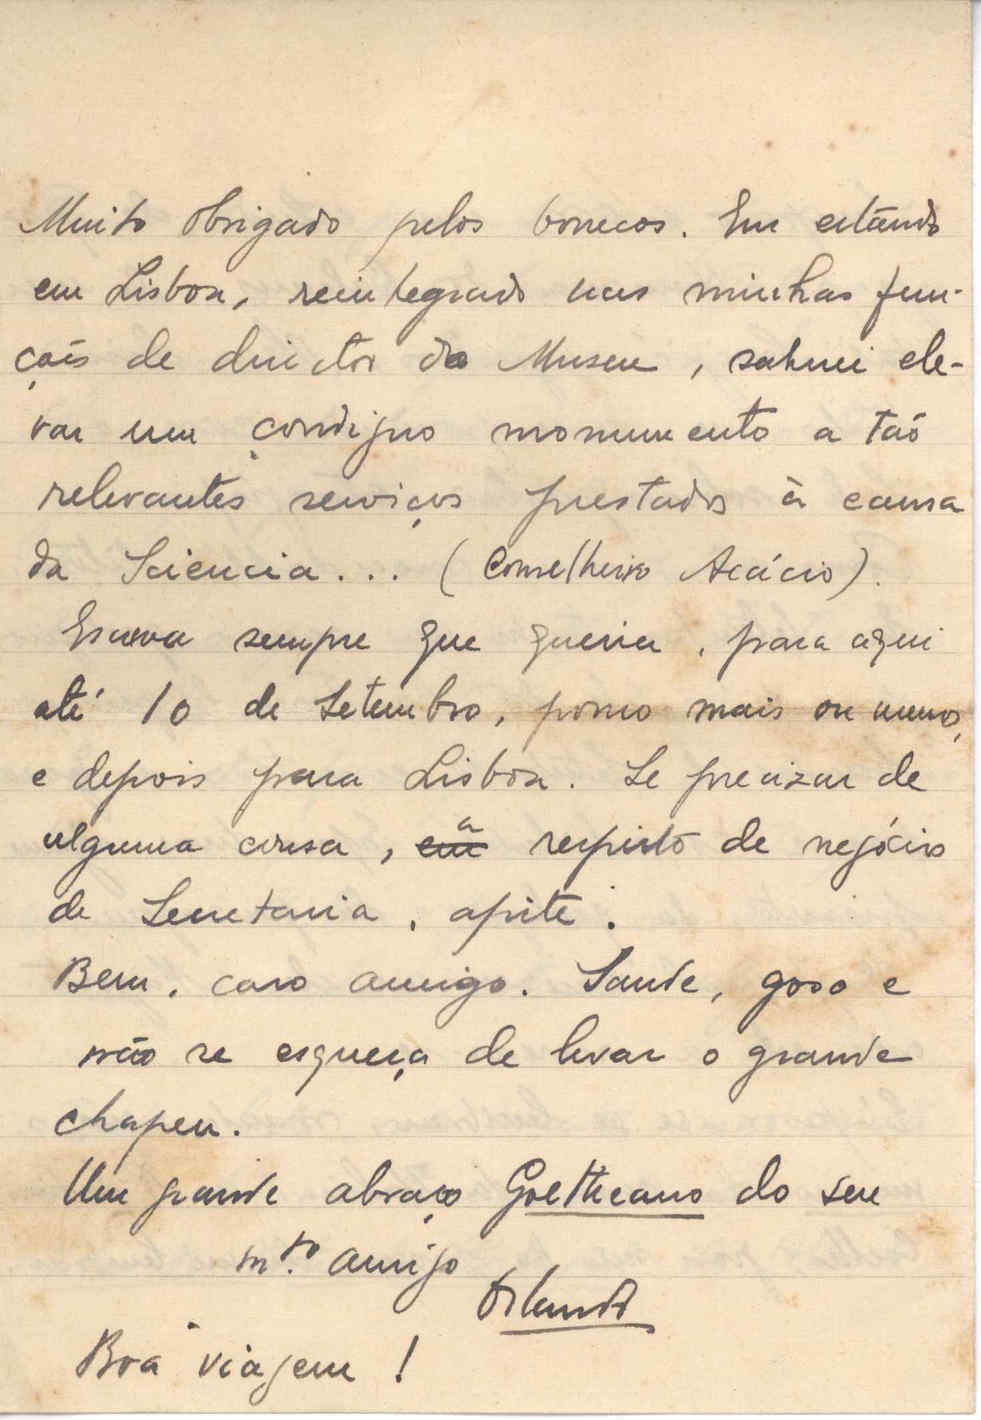 Muito obrigado pelos bonecos. Em estando
em Lisboa, reintegrado nas minhas fun-
ções de director do Museu, saberei ele-
var um condigno monumento a tão
relevantes serviços prestados à causa
da Sciencia... (Conselheiro Acácio).
Escreva sempre que queira, para aqui
até 10 de Setembro, pouco mais ou menos,
e depois para Lisboa. Se precizar de
alguma cousa, em a respeito de negócios
de Secretaria, apite.
Bem, caro amigo. Saude, goso e
não se esqueça de levar o grande
chapeu.
Um grande abraço Goetheano do seu
m.to amigo
Orlando
Boa viagem!